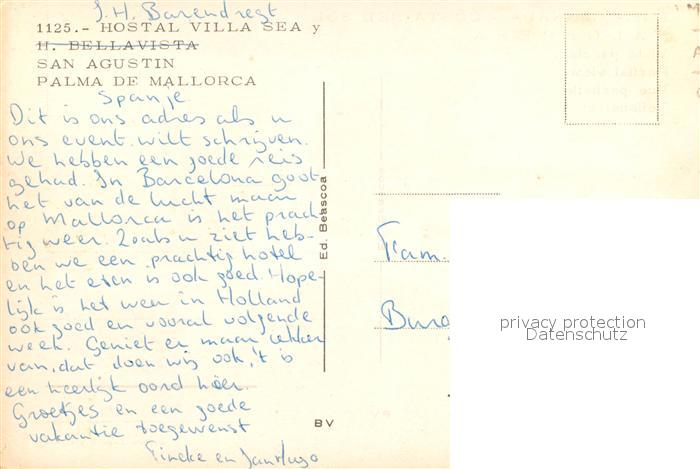 J.H. Barendregt
1125.- HOSTAL VILLA SEA y
H. BELLAVISTA
SAN AGUSTIN
PALMA DE MALLORCA
Spanje
Dit is ons adres als u
ons event. wilt schrijven.
We hebben een goede reis
gehad. In Barcelona goot
het van de lucht maar
op Mallorca is het prach
tig weer. Zoals u ziet heb-
ben we een prachtig hotel
en het eten is ook goed. Hope-
lijk is het weer in Holland
ook goed en vooral volgende
week. Geniet er maar lekker
van, dat doen wij ook, 't is
een heerlijk oord hier.
Groetjes en een goede
vakantie toegewenst
Tineke en Jan Hugo
Ed. Belascoa
BV
Fam.
Burg
privacy protection
Datenschutz